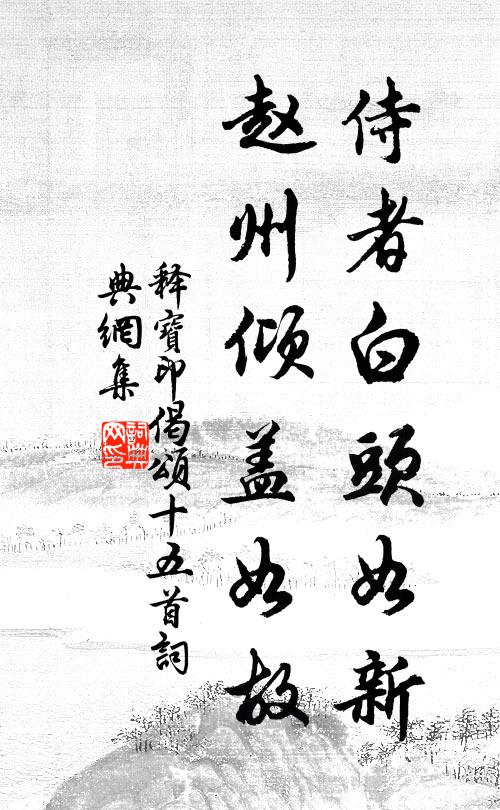 侍者白頭如新
赵州倾盖如故
释寶印偈頌十五首詞
典網集